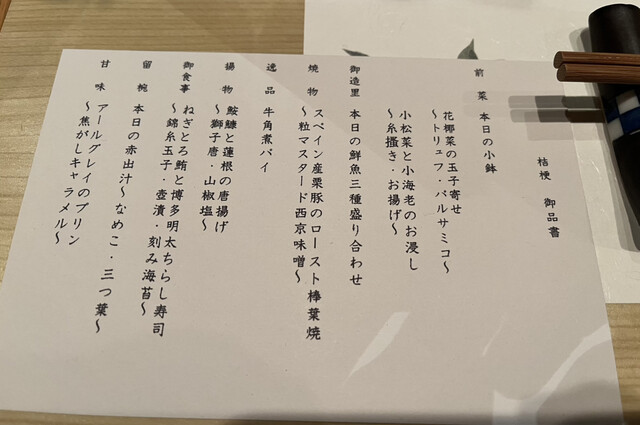 桔梗　御品書
前　菜　本日の小鉢
花椰菜の玉子寄せ
〜トリュフ・バルサミコ〜
小松菜と小海老のお浸し
〜糸掻き・お揚げ〜
御造里　本日の鮮魚三種盛り合わせ
焼　物　スペイン産栗豚のロースト棒葉焼
〜粒マスタード西京味噌〜
逸　品　牛角煮パイ
揚　物　鮟鱇と蓮根の唐揚げ
〜獅子唐・山椒塩〜
御食事　ねぎとろ鮪と博多明太ちらし寿司
〜錦糸玉子・壺漬・刻み海苔〜
留　椀　本日の赤出汁〜なめこ・三つ葉〜
甘　味　アールグレイのプリン
〜焦がしキャラメル〜